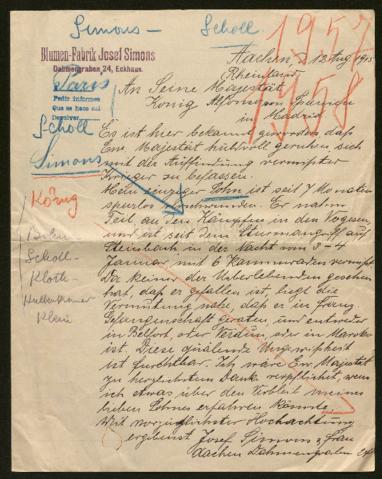 Simons - Scholl
1957
1958
Blumen-Fabrik Josef Simons
Dahmengraben 24, Eckhaus.
Aachen, 12 Aug 1915
Rheinland
Paris
Pedir informes
Que se haga así
Devolver
Scholl
Simons
König
Scholl-
Kloth-
Klein
An Seine Majestät
König Alfons von Spanien
in Madrid
Es ist hier bekannt geworden daß
Ew Majestät huldvoll geruhen, sich
mit der Auffindung vermißter
Krieger zu befassen.
Mein einziger Sohn ist seit 7 Monaten
spurlos verschwunden. Er nahm
Teil an den Kämpfen in den Vogesen
und ist seit dem Sturmangriff auf
Steinbach in der Nacht vom 3-4
Januar mit 6 Kammeraden vermißt
Da keiner der Ueberlebenden gesehen
hat, daß er gefallen ist, liegt die
Vermutung nahe, daß er in franz.
Gefangenschaft geraten, und entweder
in Belfort, oder Verdun oder in Marokko
ist. Diese quälende Ungewißheit
ist furchtbar. Ich wäre Ew Majestät
zu herzlichstem Danke verpflichtet, wenn
ich etwas über den Verbleib meines
lieben Sohnes erfahren könnte.
Mit vorzüglichster Hochachtung
ergebenst Josef Simons u Frau
Aachen Dahmengraben